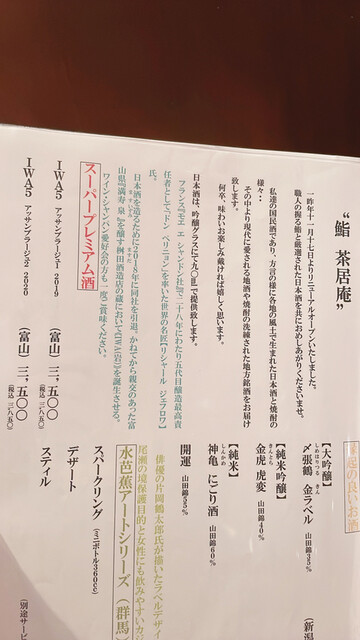 “鮨 茶居庵”
一昨年十一月十七日よりリニューアルオープンいたしました。
職人の握る鮨と厳選された日本酒を共にお召しあがりくださいませ。
私達の国民酒であり、方言の様に各地の風土で生まれた日本酒と焼酎の
様々‥
その中より現代に愛される地酒や焼酎の洗練された地方銘酒をお届け
致します。
何卒、味わいお楽しみ戴ければ嬉しく思います。
日本酒は、吟醸グラスにて九〇㎖で提供致します。
フランス『モエ エ シャンドン社』で、二十八年にわたり五代目醸造最高責
任者として、『ドン ペリニヨン』を率いた世界の名匠【リシャール ジェフロワ】
氏。
日本酒を造るために2018年に同社を引退。かねてから親交のあった富
山県『満寿泉』を醸す桝田酒造店の蔵において《IWA(岩)》を誕生させる。
ますいずみ
ますだ
ワイン・シャンパン愛好会の方も一度ご賞味ください。
スーパープレミアム酒
IWA5 アッサンブラージュ1 2019 (富山) 三、五〇〇
(税込 三八五〇)
IWA5 アッサンブラージュ2 2020 (富山) 三、五〇〇
(税込 三八五〇)
【大吟醸】
しめはりつる きん
〆張鶴 金ラベル 山田錦35%
(新潟
【純米吟醸】
きんとら
金虎 虎変 山田錦40%
【純米】
しんかめ
神亀 にごり酒 山田錦60%
開運 山田錦55%
俳優の片岡鶴太郎氏が描いたラベルデザイ
尾瀬の環境保護目的と女性にも飲みやすいカ
水芭蕉アートシリーズ (群馬)
スパークリング (ミニボトル360cc)
デザート
スティル
(別途サービ